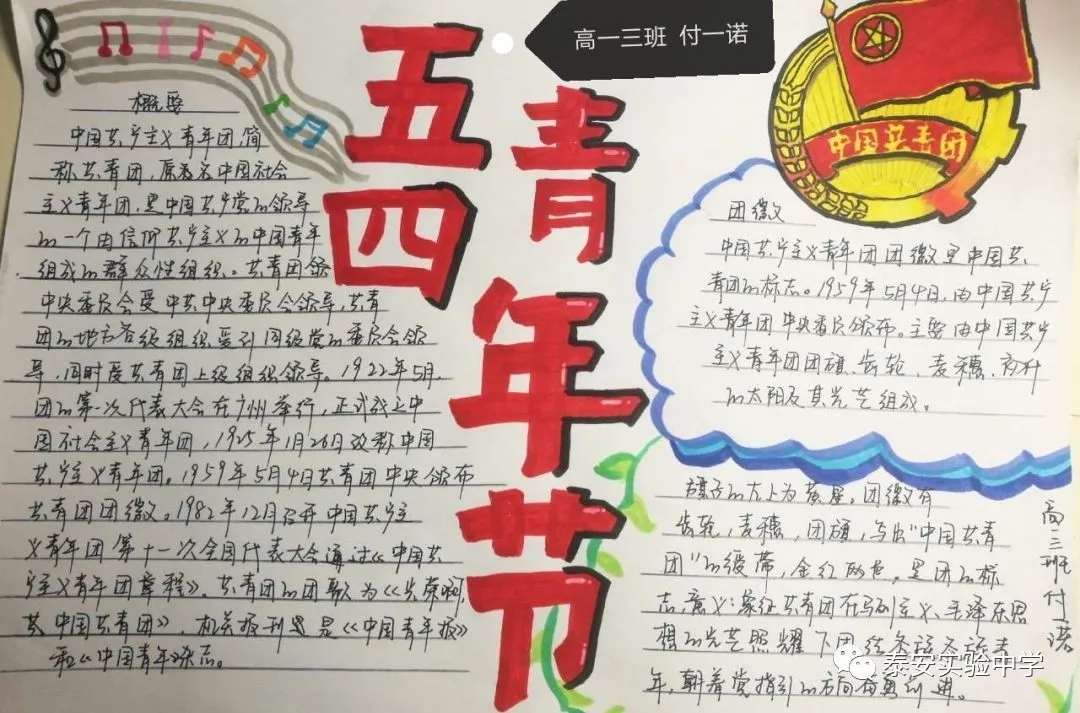 高一三班 付一诺
五四
青年节
概要
中国共产主义青年团,简
称共青团,原名为中国社会
主义青年团,是中国共产党的领导
的一个由信仰共产主义的中国青年
组成的群众性组织。共青团
中央委员会受中共中央委员会领导,共青
团的地方各级组织受到同级党的委员会领
导,同时受共青团上级组织领导。1922年5月,
团的第一次代表大会在广州举行,正式成立中
国社会主义青年团,1925年1月26日改称中国
共产主义青年团。1959年5月4日共青团中央颁布
共青团团徽。1982年12月召开中国共产主
义青年团第十一次全国代表大会通过《中国共
产主义青年团章程》。共青团的团歌为《光荣啊,
中国共青团》,机关报刊是《中国青年报》
和《中国青年》杂志。
中国共青团
团徽
中国共产主义青年团团徽是中国共
青团的标志。1959年5月4日,由中国共产
主义青年团中央委员颁布。主要由中国共产
主义青年团团旗、齿轮、麦穗、初升
的太阳及其光芒组成。
旗子的左上为黄星。团徽有
齿轮,麦穗,团旗,写出“中国共青
团”的绶带,金红两色,是团的标
志,意义:象征共青团在马列主义、毛泽东思
想的光芒照耀下团结各族
年,朝着党指引的方向奋勇前进。
高一三班付一诺
泰安实验中学